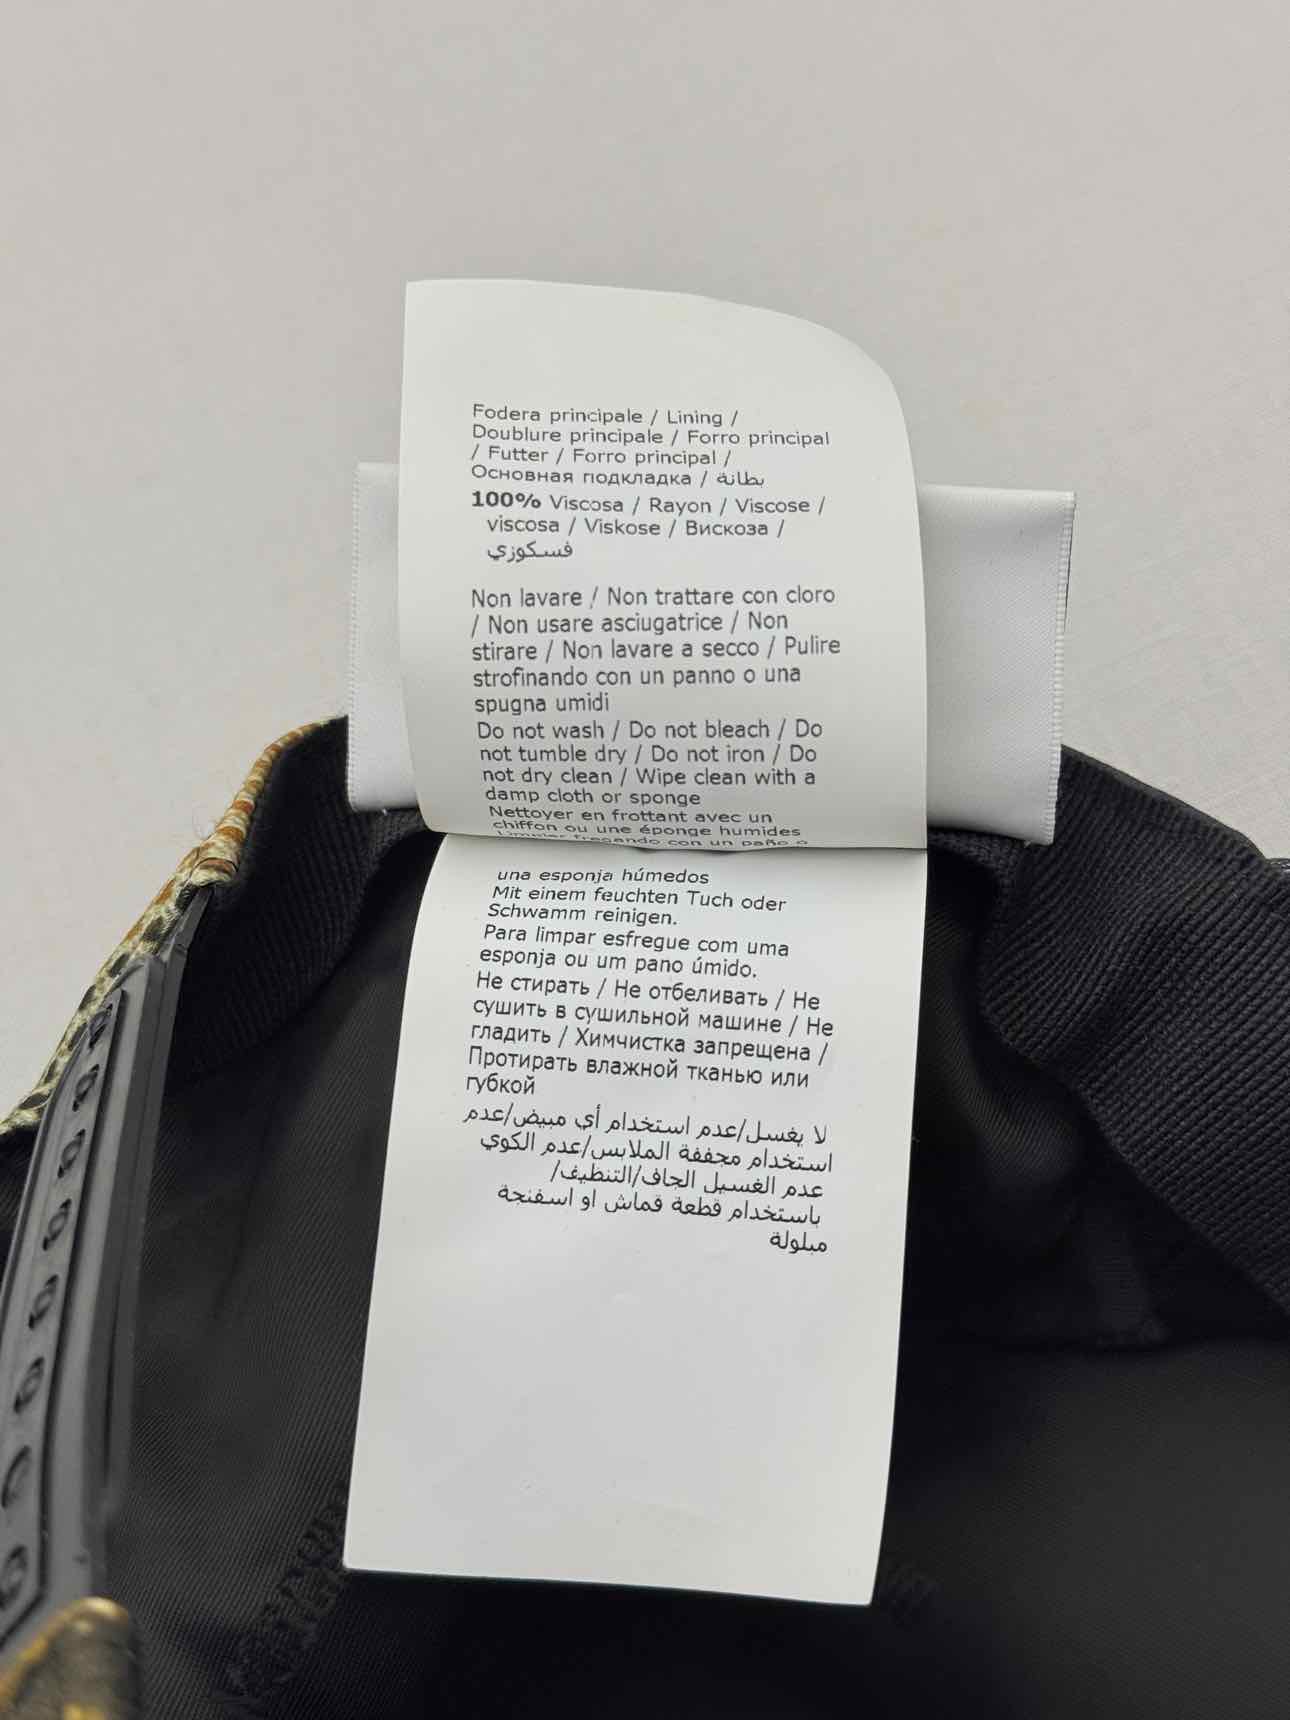 Fodera principale / Lining /
Doublure principale / Forro principal
/ Futter / Forro principal /
Основная подкладка / بطانة
100% Viscosa / Rayon / Viscose /
viscosa / Viskose / Вискоза /
فسكوزي
Non lavare / Non trattare con cloro
/ Non usare asciugatrice / Non
stirare / Non lavare a secco / Pulire
strofinando con un panno o una
spugna umidi
Do not wash / Do not bleach / Do
not tumble dry / Do not iron / Do
not dry clean / Wipe clean with a
damp cloth or sponge
Nettoyer en frottant avec un
chiffon ou une éponge humides
Limpiar fregando con un paño o
una esponja húmedos
Mit einem feuchten Tuch oder
Schwamm reinigen.
Para limpar esfregue com uma
esponja ou um pano úmido.
Не стирать / Не отбеливать / Не
сушить в сушильной машине / Не
гладить / Химчистка запрещена /
Протирать влажной тканью или
губкой
لا يغسل/عدم استخدام أي مبيض/عدم
استخدام مجففة الملابس/عدم الكوي
عدم الغسيل الجاف/التنظيف/
باستخدام قطعة قماش او اسفنجة
مبلولة